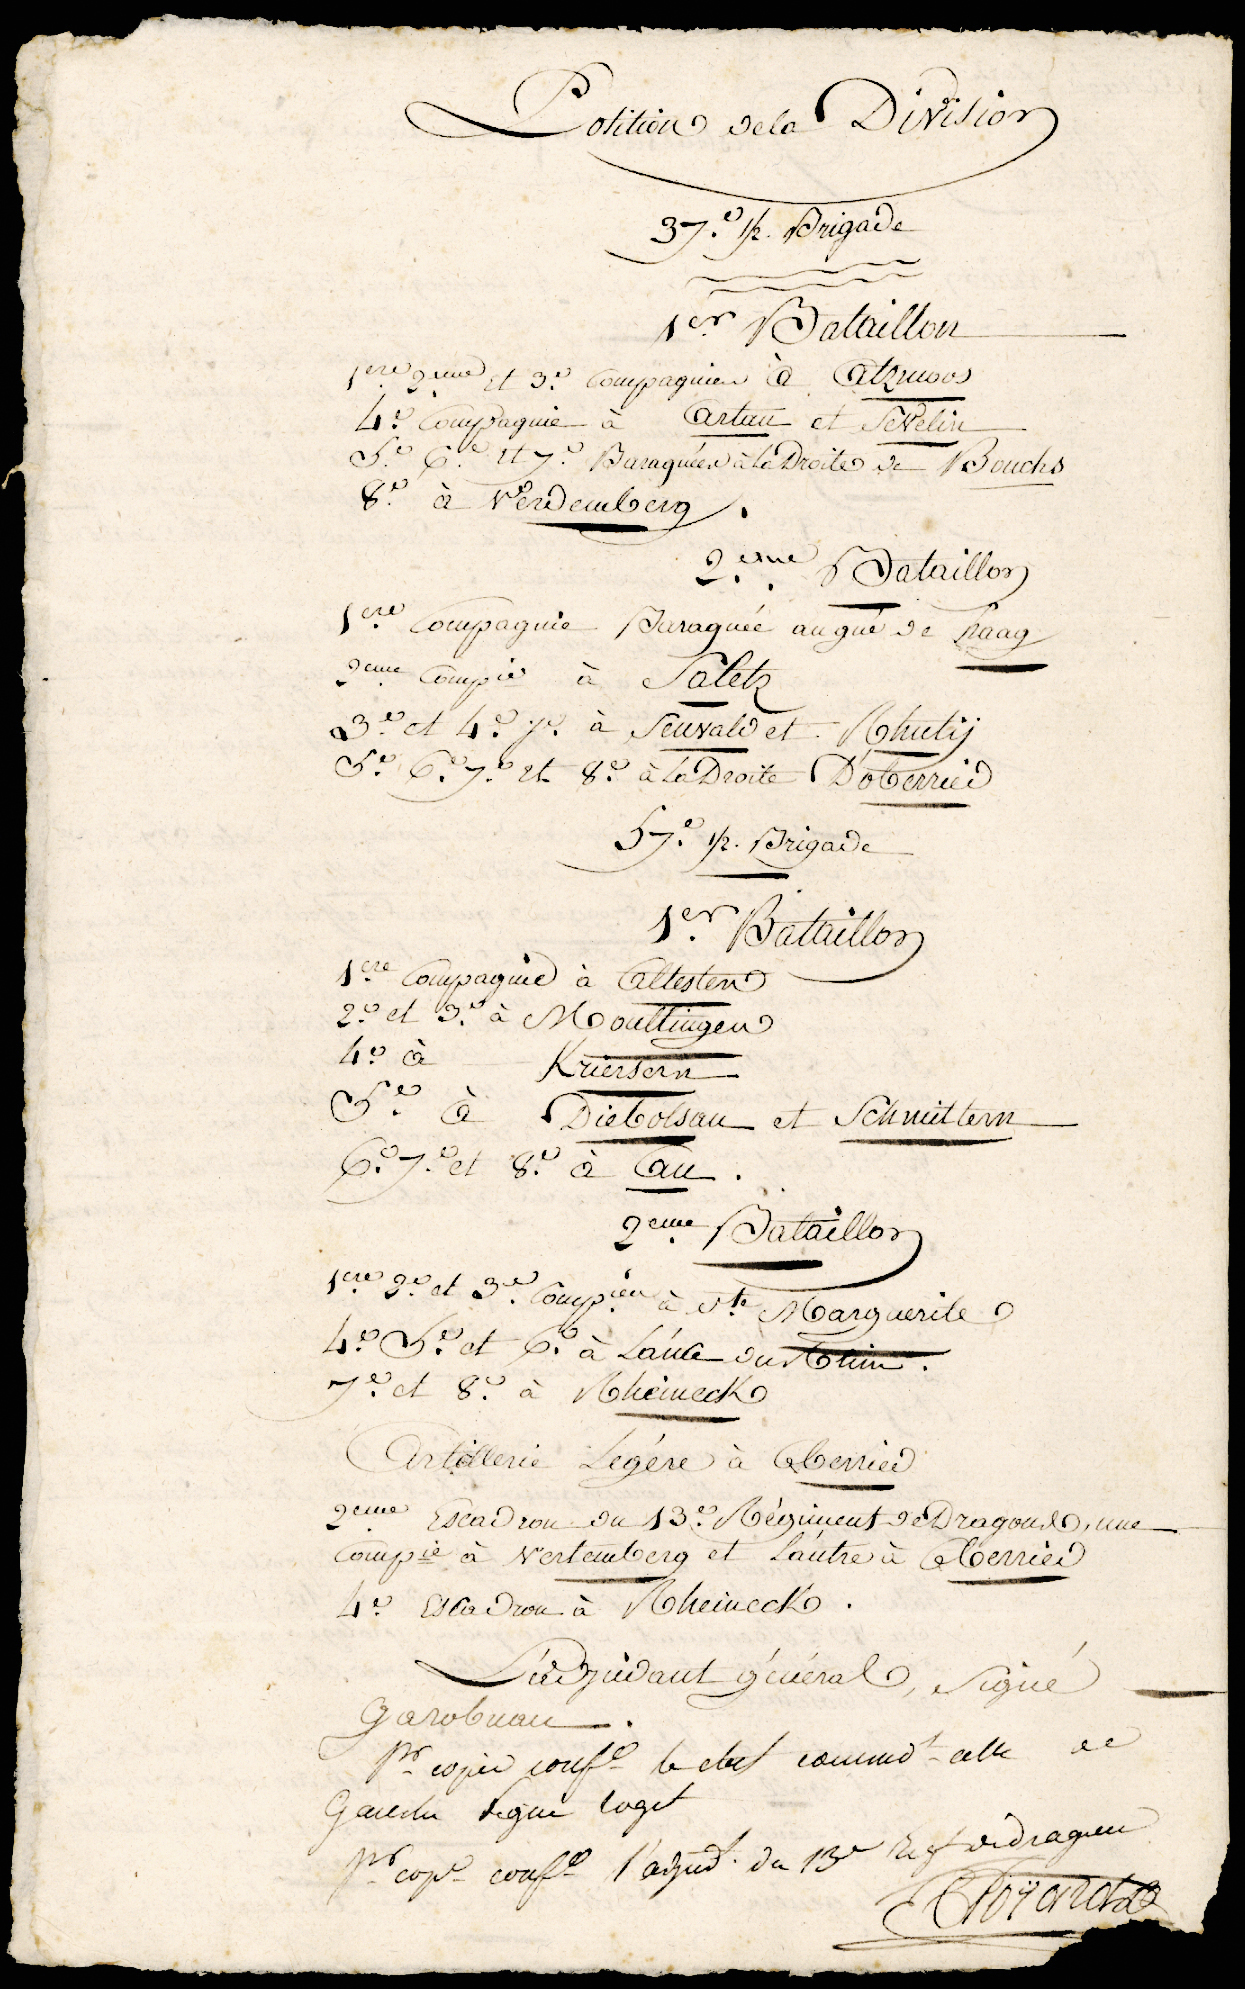 Position de la Division
37.e 1/2. Brigade
1er Bataillon
1ere 2eme et 3.e Compagnies à Atzmoos
4.e Compagnie à Artau et Sevelin
5.e 6.e et 7.e Baraquées à la Droite de Bouchs
8.e à Verdemberg.
2.eme Bataillon
1ere Compagnie Baraquée au gué de haag
2eme Compie à Saletz
3.e et 4.e à Senvald et Rhutij
5.e 6.e 7.e et 8.e à la Droite D'oberried
57.e 1/2. Brigade
1er. Bataillon
1ere Compagnie à Altesten
2.e et 3.e à Moultingen
4.e à Kriersern
5.e à Diebolsau et Schmittern
6.e 7.e et 8.e à au.
2eme Bataillon
1ere 2.e et 3.e Compies à Ste Marguerite
4.e 5.e et 6.e à du Rhin.
7.e et 8.e à Rheineck
Artillerie Legére à Oberried
2eme Escadron du 13.e Régiment de Dragons, une
compie à Vertemberg et L'autre à Oberried
4.e Escadron à Rheineck.
L'adjudant général, Signé
Garobuau.
Pr copie conf.e le chef commdt celle de
Gauche signé
Pr cope conf.e l'adjudt. du 13e Regt de dragons